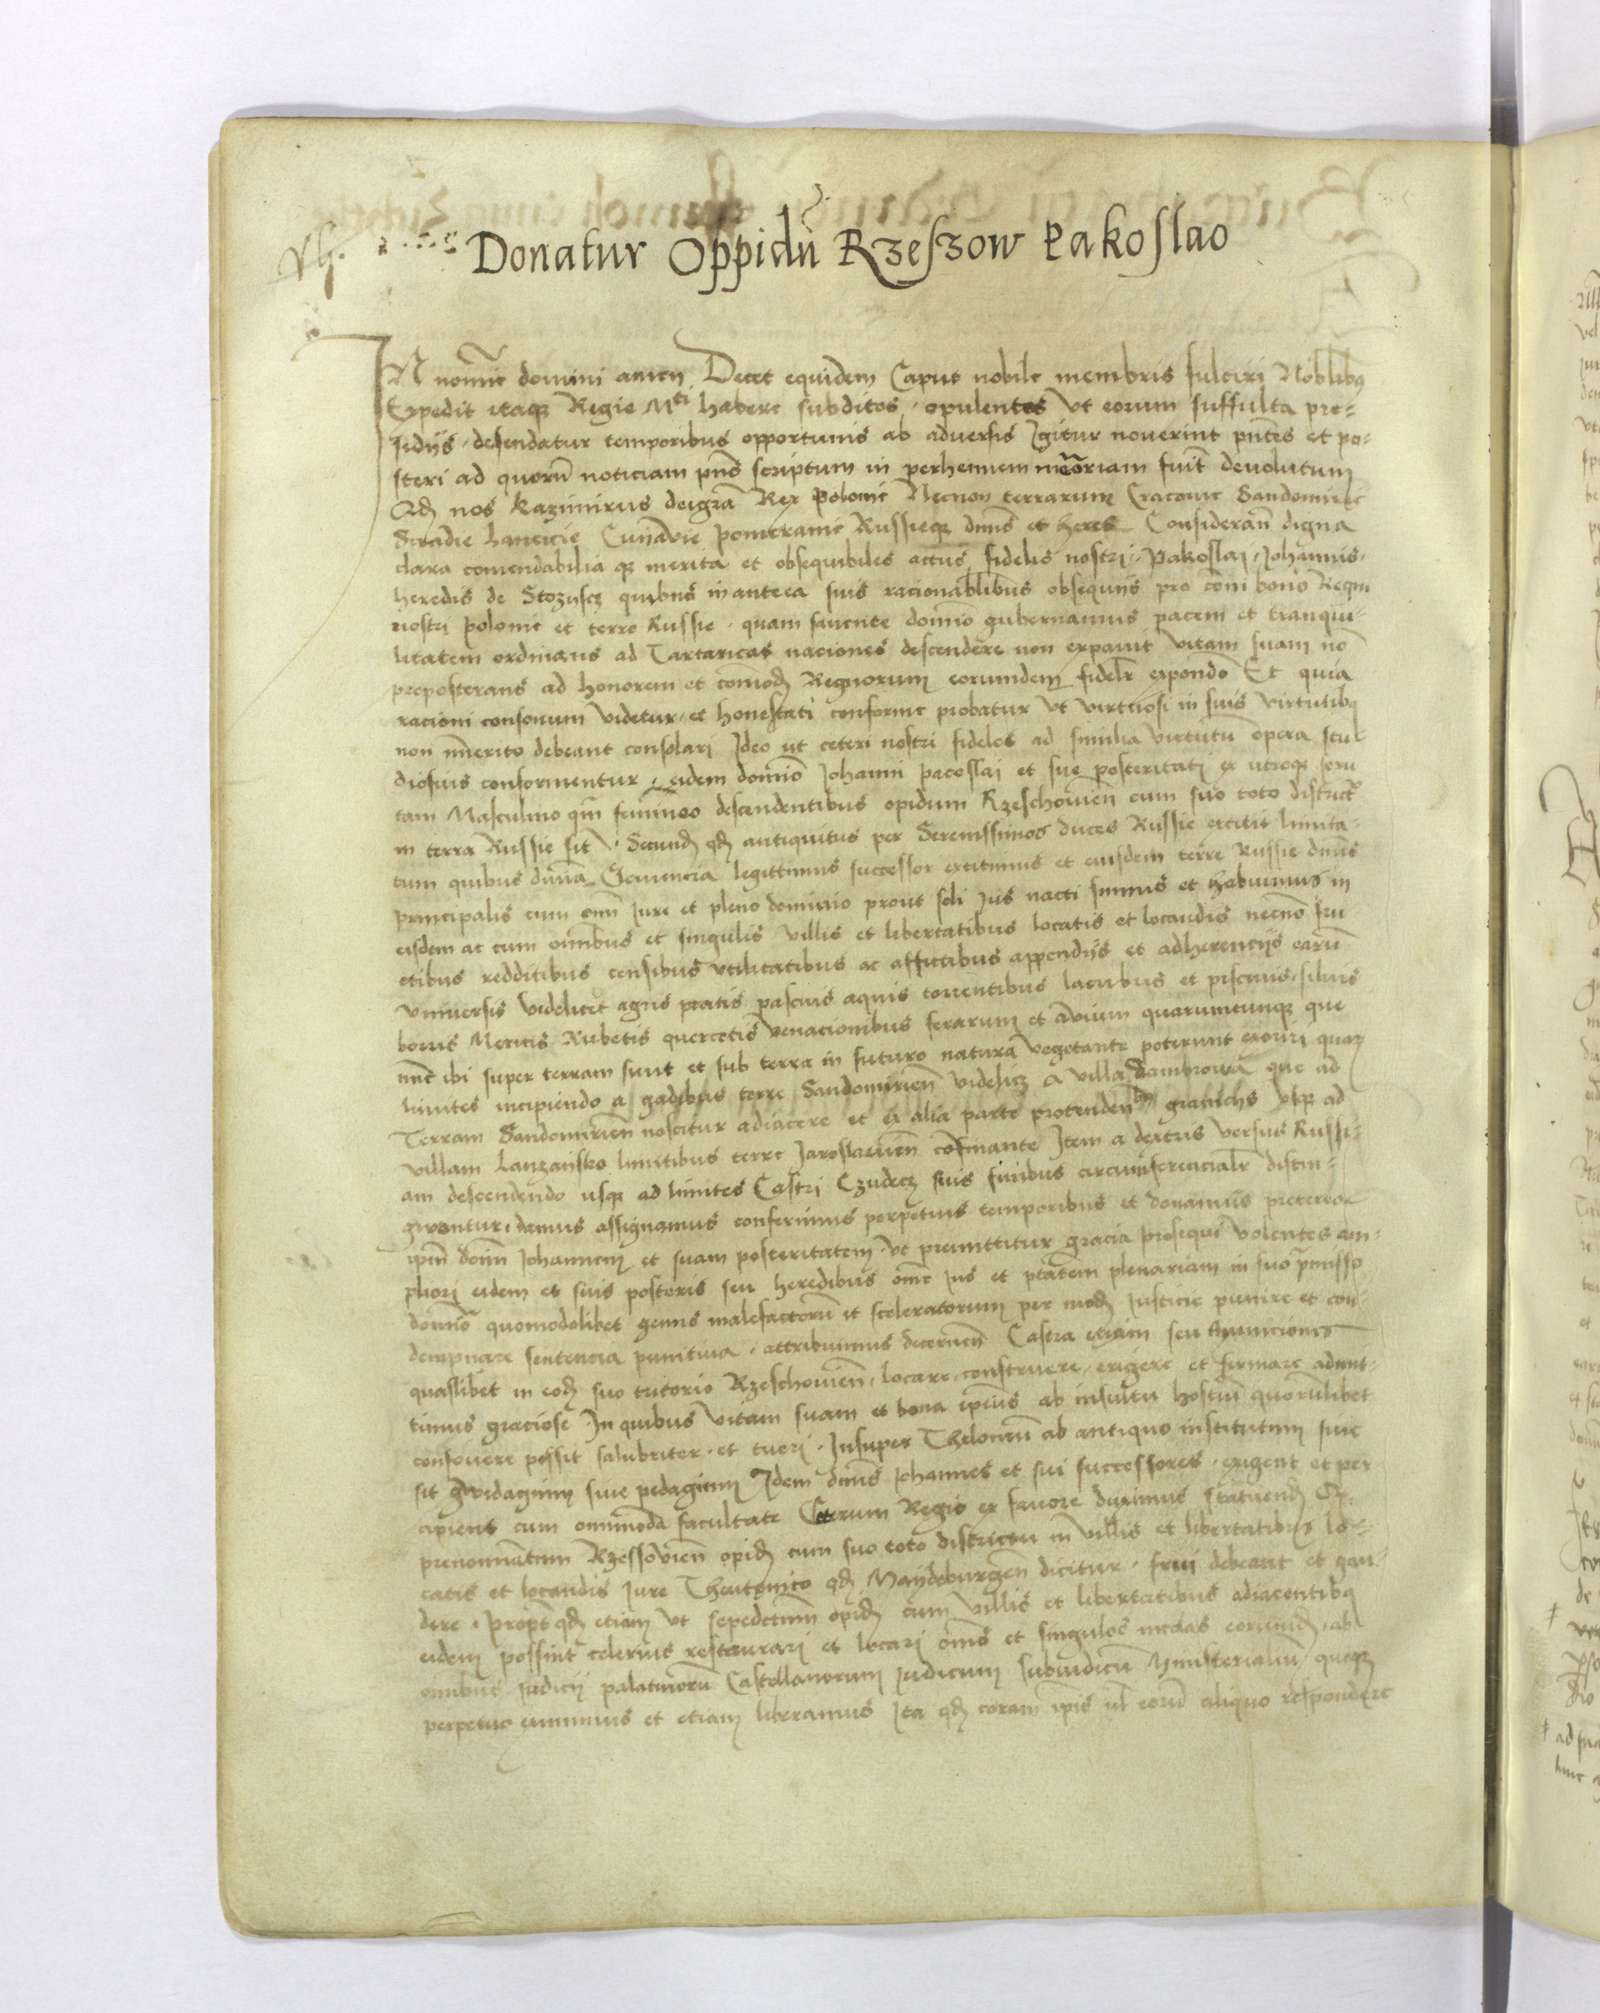 Donatur Oppidū Rzeszow Pakoslao
IN nomīe domini amen Decet equidem Caput nobile membris fulciri Nobilibus
Expedit itaque Regie Mti habere subditos opulentos Ut eorum suffulta pre-
sidijs defendatur temporibus opportunis ab adversis Igitur noverint pntes et po-
steri ad quorū noticiam pns scriptum in perhennem memoriam fuit devolutum
Qd nos Kazimirus deigrā Rex Polonie Necnon terrarum Cracovie Sandomirie
Siradie Lancicie Cuiavie Pomeranie Russieque dnus et heres Considerān digna
clara comendabilia que merita et obsequibiles actus fidelis nostri Pakoslai Johannis
heredis de Stozyscz quibus in antea suis racionabilibus obsequijs pro comi bono Regni
nostri Polonie et terre Russie quam favente domino gubernamus pacem et tranqui-
litatem ordinans ad Tartaricas naciones descendere non expavit vitam suam nō
preposterans ad honorem et comod Regnorum eorumdem fidelr exponendo Et quia
racioni consonum videtur et honestati conforme probatur ut virtuosi in suis virtutibus
non imerito debeant consolari Ideo ut ceteri nostri fideles ad similia virtutū opera stu-
diosius conformentur eidem domino Johanni Pacoslai et sue posteritati ex utroque sexu
tam Masculino qm femineo descendentibus opidum Rzeschovien cum suo toto districtu
in terra Russie sit Secund qd antiquitus per Serenissimos duces Russie extitit limita-
tum quibus divina Clemencia legittimus successor extitimus et eiusdem terre Russie dnus
principalis cum omi Jure et pleno dominio prout soli Jus nacti sumus et habuimus in
eisdem ac cum omibus et singulis villis et libertatibus locatis et locandis necnō fru-
ctibus redditibus censibus utilitatibus ac affictibus appendijs et adherentijs earū
Universis videlicet agris pratis pascuis aquis torrentibus lacubus et piscinis silvis
borris Mericis Rubetis quercetis venacionibus ferarum et avium quarumcunque que
nūc ibi super terram sunt et sub terra in futuro natura vegetante poterunt exoriri quorum
limites incipiendo a gadibus terre Sandomirien videlicz a villa Dambrowa que ad
Terram Sandomirien noscitur adiacere et ex alia parte protenden granichs usque ad
villam Lanzansko limitibus terre Jaroslavien cōfinante Item a dextris versus Russi-
am descendendo usque ad limites Castri Czudecz suis finibus circumferencialr distin-
gwentur damus assignamus conferimus perpetuis temporibus et donamus preterea
ipm dnm Johannem et suam posteritatem ut premittitur gracia prosequi volentes am-
pliori eidem et suis posteris seu heredibus ome Jus et ptātem plenariam in suo premisso
dominio quomodolibet genus malefactorū et sceleratorum per mod Justicie punire et con-
dempnare sentencia punitiva attribuimus decernen Castra etiam seu Municiones
quaslibet in eod suo tritorio Rzeschovien locare construere erigere et firmare admit-
timus graciose In quibus vitam suam et bona ipius ab insultu hostiū quorūlibet
confovere possit salubriter et tueri Insuper Theloneū ab antiquo institutum sive
sit gwidagium sive pedagium Idem dnus Johannes et sui successores exigent et per-
cipient cum omnimoda facultate Ceterum Regio ex favore duximus statuend Ut
prenominatum Rzessovien opid cum suo toto districtu in villis et libertatibus lo-
catis et locandis Jure Theutonico qd Maydeburgen dicitur frui debeant et gau-
dere propt qd etiam ut sepedictum opid cum villis et libertatibus adiacentibus
eidem possint celerius restaurari et locari omes et singulos incolas eorund ab
omibus Judicijs palatinorū Castellanorum Judicum subiudicū Ministerialiū quoque
perpetuo eximimus et etiam liberamus Ita qd coram ipis vel eorū aliquo respondere